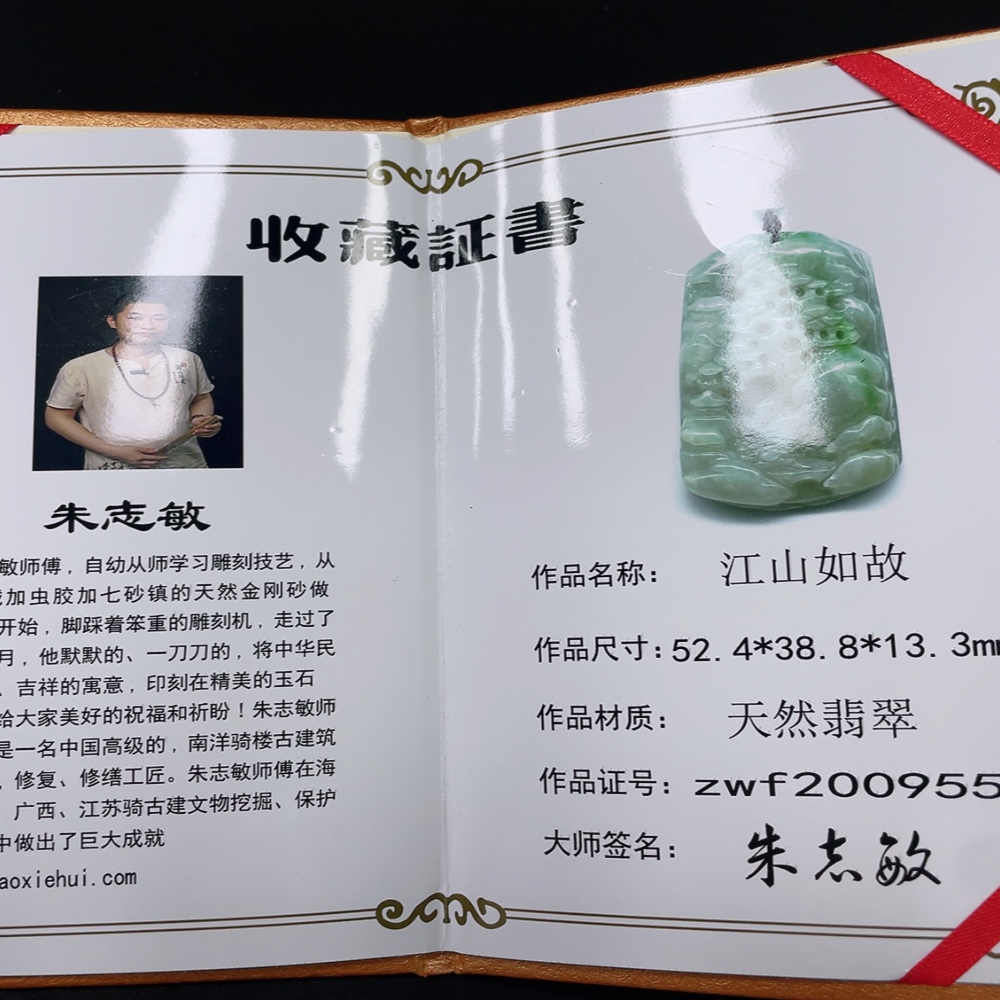 收藏証書
朱志敏
敏师傅，自幼从师学习雕刻技艺，从
加虫胶加七砂镇的天然金刚砂做
开始，脚踩着笨重的雕刻机，走过了
月，他默默的、一刀刀的，将中华民
、吉祥的寓意，印刻在精美的玉石
给大家美好的祝福和祈盼！朱志敏师
是一名中国高级的，南洋骑楼古建筑
，修复、修缮工匠。朱志敏师傅在海
、广西、江苏骑古建文物挖掘、保护
中做出了巨大成就
aoxiehui.com
作品名称：江山如故
作品尺寸：52.4*38.8*13.3mm
作品材质：天然翡翠
作品证号：zwf200955
大师签名：朱志敏